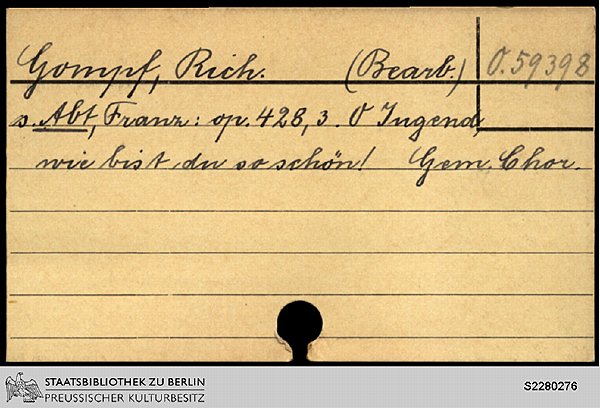 Gompf, Rich. (Bearb.) O. 59398
s. Abt, Franz: op. 428, 3. O Jugend,
wie bist du so schön! Gem. Chor.
STAATSBIBLIOTHEK ZU BERLIN
PREUSSISCHER KULTURBESITZ
S2280276